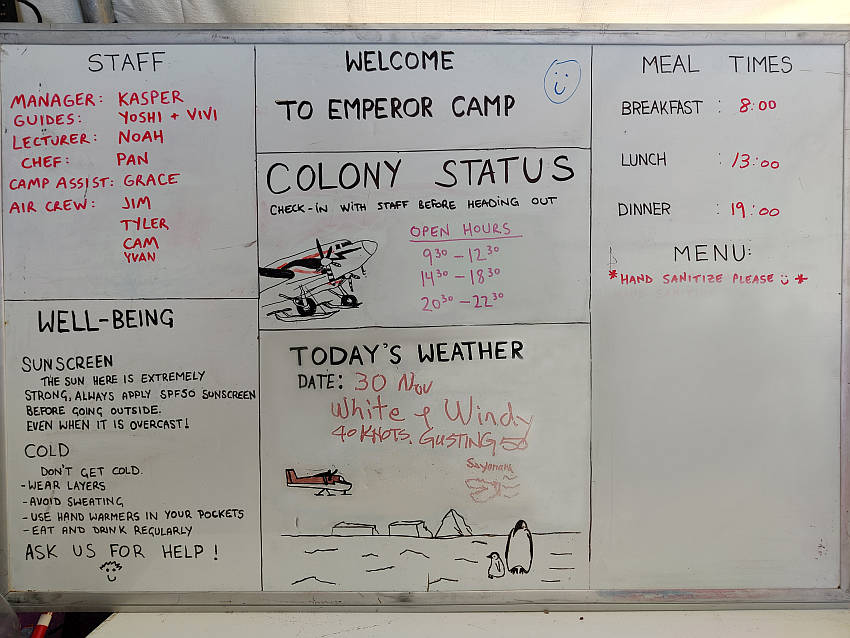 STAFF
MANAGER: KASPER
GUIDES: YOSHI + VIVI
LECTURER: NOAH
CHEF: PAN
CAMP ASSIST: GRACE
AIR CREW: JIM
TYLER
CAM
YVAN
WELL-BEING
SUNSCREEN
THE SUN HERE IS EXTREMELY
STRONG, ALWAYS APPLY SPF50 SUNSCREEN
BEFORE GOING OUTSIDE.
EVEN WHEN IT IS OVERCAST!
COLD
DON'T GET COLD.
- WEAR LAYERS
- AVOID SWEATING
- USE HAND WARMERS IN YOUR POCKETS
- EAT AND DRINK REGULARLY
ASK US FOR HELP!
WELCOME
TO EMPEROR CAMP
COLONY STATUS
CHECK-IN WITH STAFF BEFORE HEADING OUT
OPEN HOURS
9³⁰ – 12³⁰
14³⁰ – 18³⁰
20³⁰ – 22³⁰
TODAY'S WEATHER
DATE: 30 Nov
White & Windy
40 KNOTS. GUSTING 50
MEAL TIMES
BREAKFAST : 8:00
LUNCH : 13:00
DINNER : 19:00
MENU:
*HAND SANITIZE PLEASE *